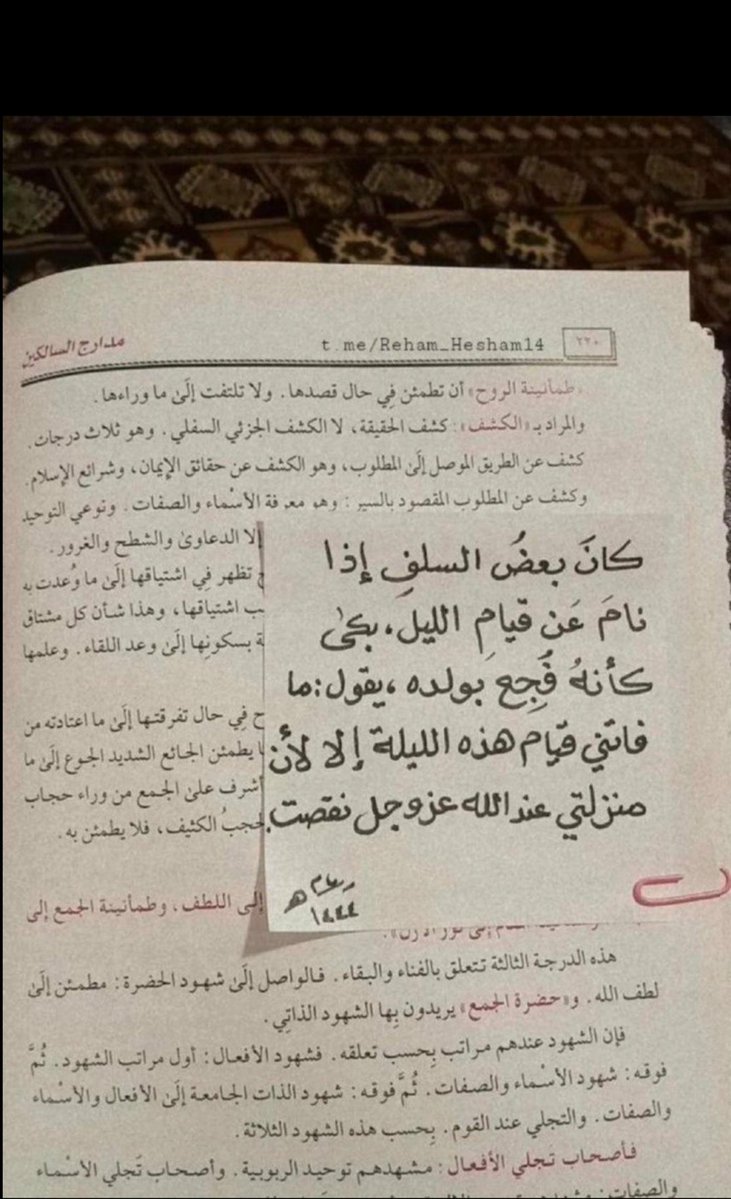 مدارج السالكين
t.me/Reham_Hesham14
٢٢٠
«طمأنينة الروح» أن تطمئن فِي حال قصدها. ولا تلتفت إلَىٰ ما وراءها.
والمراد بـ «الكشف»: كشف الحقيقة، لا الكشف الجزئي السفلي. وهو ثلاث درجات.
كشف عن الطريق الموصل إلَىٰ المطلوب، وهو الكشف عن حقائق الإيمان، وشرائع الإسلام.
وكشف عن المطلوب المقصود بالسير: وهو معرفة الأسْماء والصفات. ونوعي التوحيد
إلا الدعاوىٰ والشطح والغرور.
تظهر فِي اشتياقها إلَىٰ ما وُعدت به
اشتياقها، وهذا شأن كل مشتاق
بسكونِها إلَىٰ وعد اللقاء. وعلمها
فِي حال تفرقتها إلَىٰ ما اعتادته من
يطمئن الجائع الشديد الجوع إلَىٰ ما
أشرف علىٰ الجمع من وراء حجاب
الكثيف، فلا يطمئن به.
كانَ بعضُ السلفِ إذا
نامَ عَن قيامِ الليل، بكىٰ
كأنهُ فُجِعَ بولده، يقول: ما
فاتني قيام هذه الليلة إلا لأن
منزلتي عند الله عز وجل نقصت.
١٤٤٤هـ
إلى اللطف، وطمأنينة الجمع إلى
هذه الدرجة الثالثة تتعلق بالفناء والبقاء. فالواصل إلَىٰ شهود الحضرة: مطمئن إلَىٰ
لطف الله. و«حضرة الجمع» يريدون بِها الشهود الذاتِي.
فإن الشهود عندهم مراتب بِحسب تعلقه. فشهود الأفعال: أول مراتب الشهود. ثُمَّ
فوقه: شهود الأسْماء والصفات. ثُمَّ فوقه: شهود الذات الجامعة إلَىٰ الأفعال والأسْماء
والصفات. والتجلي عند القوم. بِحسب هذه الشهود الثلاثة.
فأصحاب تجلي الأفعال: مشهدهم توحيد الربوبية. وأصحاب تَجلي الأسْماء
والصفات: